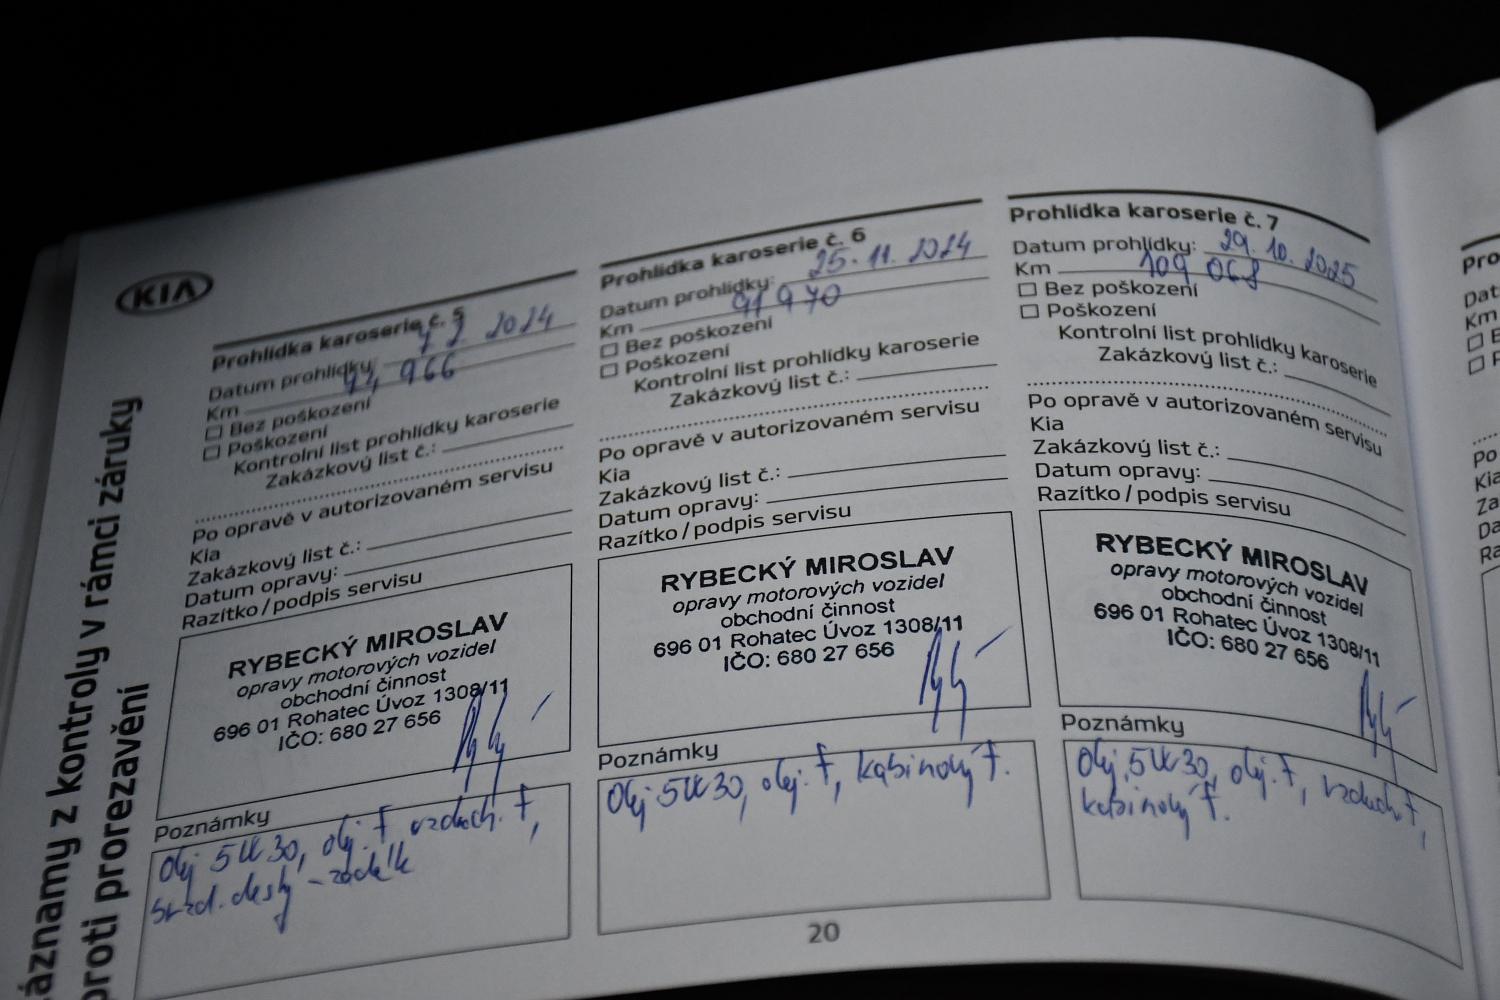 KIA
áznamy z kontroly v rámci záruky
proti prorezavění
Prohlídka karoserie č. 5
Datum prohlídky: 7 2. 2024
Km 74 966
Bez poškození
Poškození
Kontrolní list prohlídky karoserie
Zakázkový list č.:
Po opravě v autorizovaném servisu
Kia
Zakázkový list č.:
Datum opravy:
Razítko / podpis servisu
RYBECKÝ MIROSLAV
opravy motorových vozidel
obchodní činnost
696 01 Rohatec Úvoz 1308/11
IČO: 680 27 656
Poznámky
Olej 5W30, olej. f, vzduch. f,
brzd. desky - zadek
Prohlídka karoserie č. 6
Datum prohlídky: 25. 11. 2024
Km 91 970
Bez poškození
Poškození
Kontrolní list prohlídky karoserie
Zakázkový list č.:
Po opravě v autorizovaném servisu
Kia
Zakázkový list č.:
Datum opravy:
Razítko / podpis servisu
RYBECKÝ MIROSLAV
opravy motorových vozidel
obchodní činnost
696 01 Rohatec Úvoz 1308/11
IČO: 680 27 656
Poznámky
Olej 5W30, olej. f, kabinový f.
Prohlídka karoserie č. 7
Datum prohlídky: 29. 10. 2025
Km 109 068
Bez poškození
Poškození
Kontrolní list prohlídky karoserie
Zakázkový list č.:
Po opravě v autorizovaném servisu
Kia
Zakázkový list č.:
Datum opravy:
Razítko / podpis servisu
RYBECKÝ MIROSLAV
opravy motorových vozidel
obchodní činnost
696 01 Rohatec Úvoz 1308/11
IČO: 680 27 656
Poznámky
Olej 5W30, olej. f, vzduch. f,
kabinový f.
20